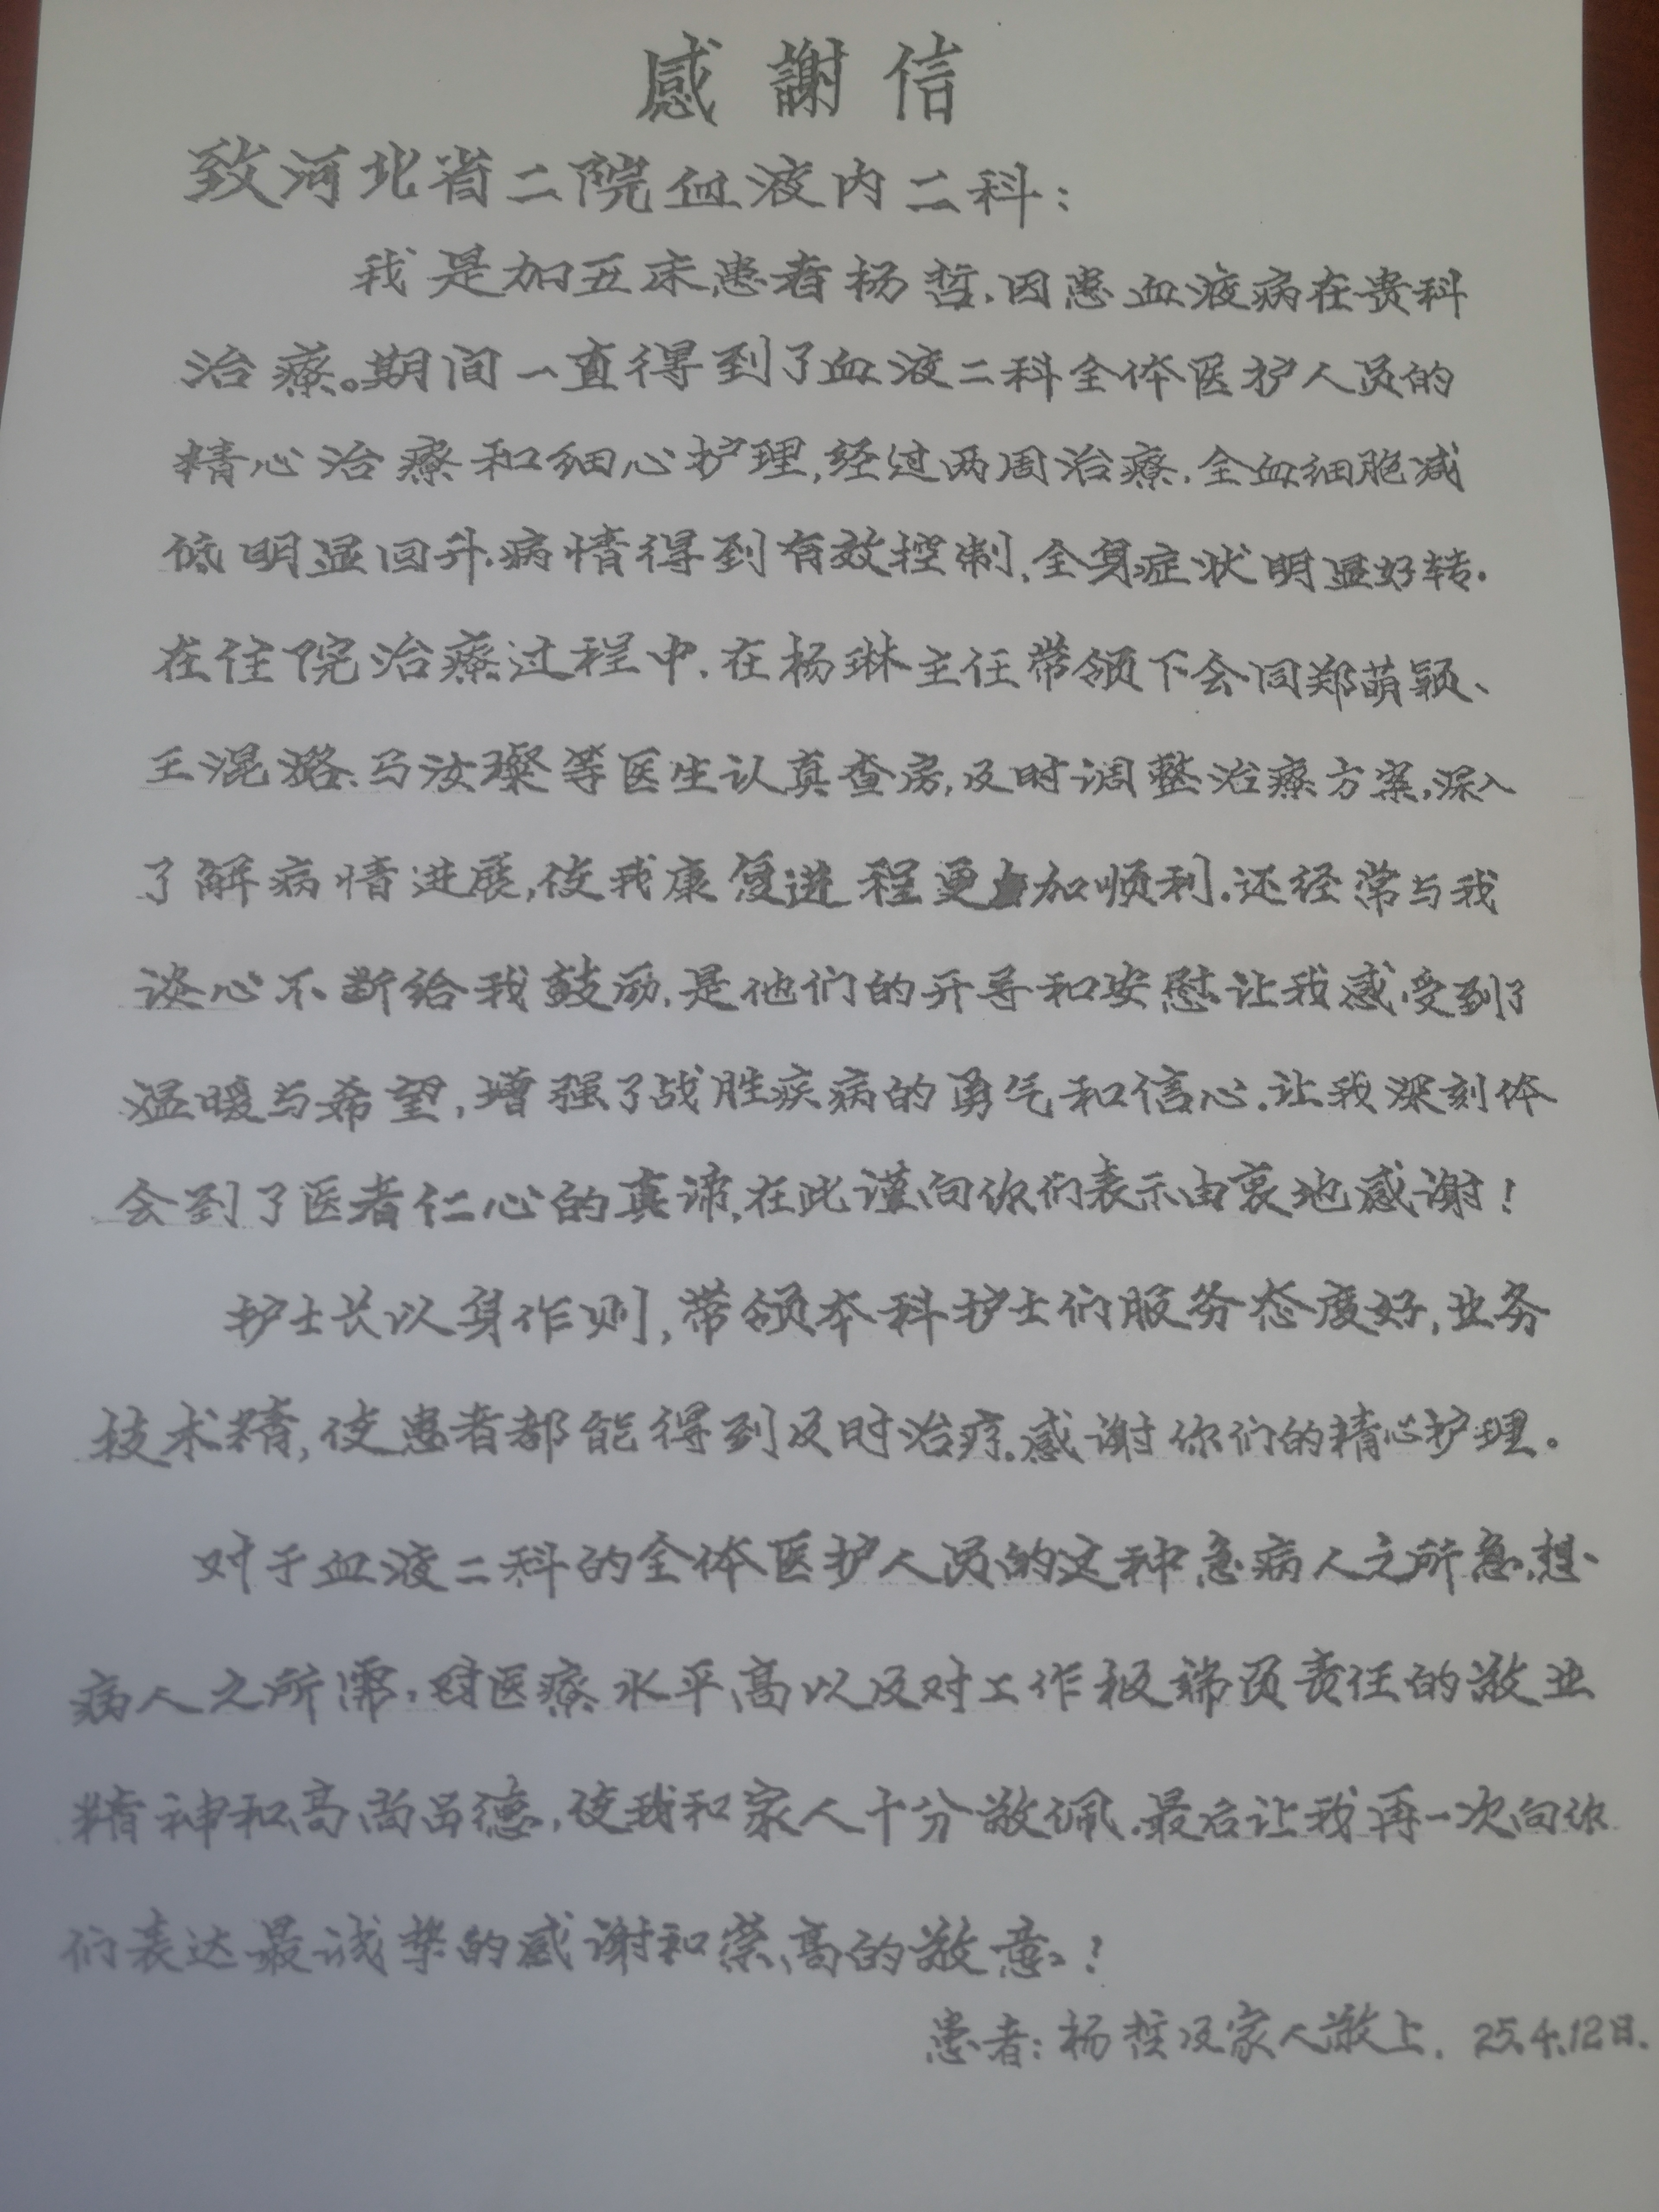 感謝信
致河北省二院血液内二科:
我是加五床患者杨哲.因患血液病在贵科
治療。期间一直得到了血液二科全体医护人员的
精心治療和细心护理,经过两周治療.全血细胞减
低明显回升.病情得到有效控制,全身症状明显好转.
在住院治療过程中.在杨琳主任带领下会同郑萌颖、
王混璐、马汝璨等医生认真查房,及时调整治療方案,深入
了解病情进展,使我康复进程更加顺利.还经常与我
谈心不断给我鼓励,是他们的开导和安慰让我感受到了
温暖与希望,增强了战胜疾病的勇气和信心.让我深刻体
会到了医者仁心的真谛,在此谨向你们表示由衷地感谢!
护士长以身作则,带领本科护士们服务态度好,业务
技术精,使患者都能得到及时治疗.感谢你们的精心护理。
对于血液二科的全体医护人员的这种急病人之所急,想
病人之所需,对医療水平高以及对工作极端负责任的敬业
精神和高尚品德,使我和家人十分敬佩.最后让我再一次向你
们表达最诚挚的感谢和崇高的敬意!
患者:杨哲及家人敬上. 25.4.12日.